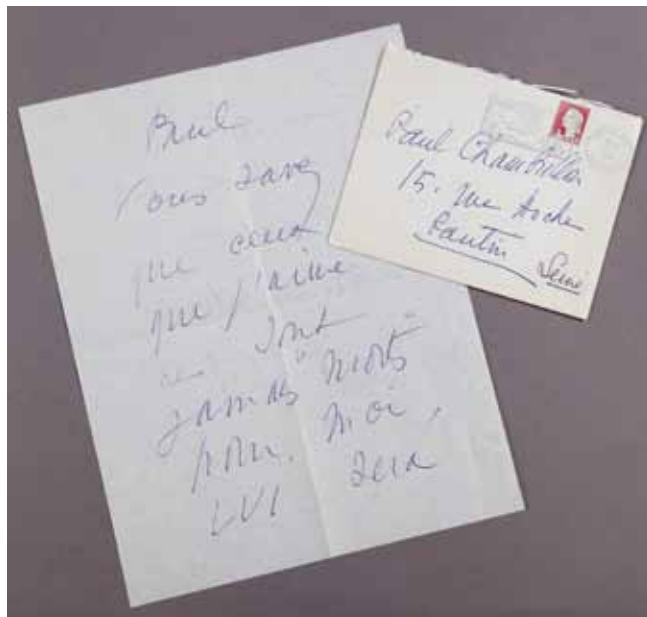 Paul
Vous savez
que ceux
que j'aime
ne sont
jamais "morts"
pour moi,
LUI sera
Paul Chambellan
15. rue Hoche
Pantin
Seine